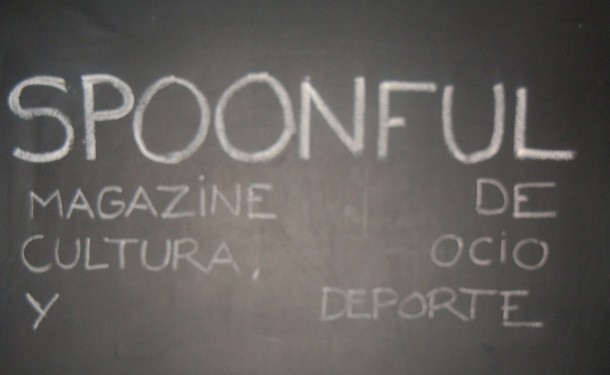 SPOONFUL
MAGAZiNE DE
CULTURA, OCiO
Y DEPORTE